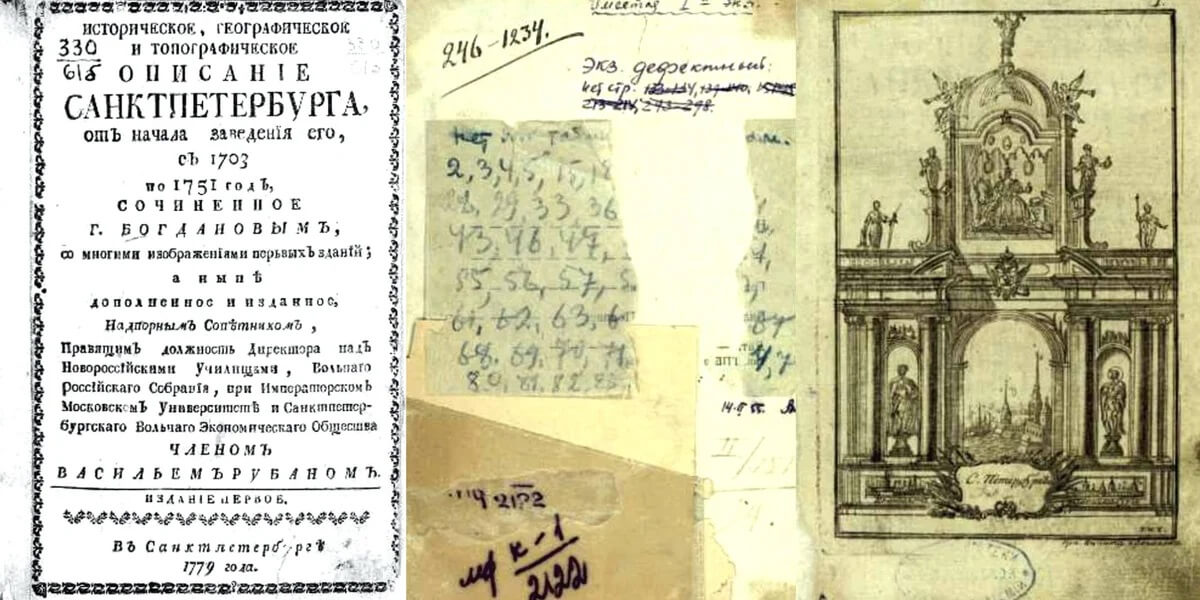 ИСТОРИЧЕСКОЕ, ГЕОГРАФИЧЕСКОЕ
330
618
И ТОПОГРАФИЧЕСКОЕ
ОПИСАНІЕ
САНКТПЕТЕРБУРГА,
отъ начала заведенія его,
съ 1703
по 1751 годъ,
СОЧИНЕННОЕ
Г. БОГДАНОВЫМЪ,
со многими изображеніями первыхъ зданій;
а нынѣ
дополненное и изданное,
Надворнымъ Совѣтникомъ,
Правящимъ должность Директора надъ
Новороссійскими Училищами, Вольнаго
Россійскаго Собранія, при Императорскомъ
Московскомъ Университетѣ и Санктпетер-
бургскаго Вольнаго Экономическаго Общества
ЧЛЕНОМЪ
ВАСИЛЬЕМЪ РУБАНОМЪ.
ИЗДАНІЕ ПЕРВОЕ.
Въ Санктпетербургѣ
1779 года.
246-1234.
Экз. дефектный:
нет стр.
213-214, 293-298.
нет
2, 3, 4, 5, 15, 18
28, 29, 33, 36
43, 46, 47,
55, 56, 57, 5
61, 62, 63, 6
68, 69, 70, 71
80, 81, 82, 83
14.II 55.
II/
2122
мф к-1
2122
1.
С. Петербургъ